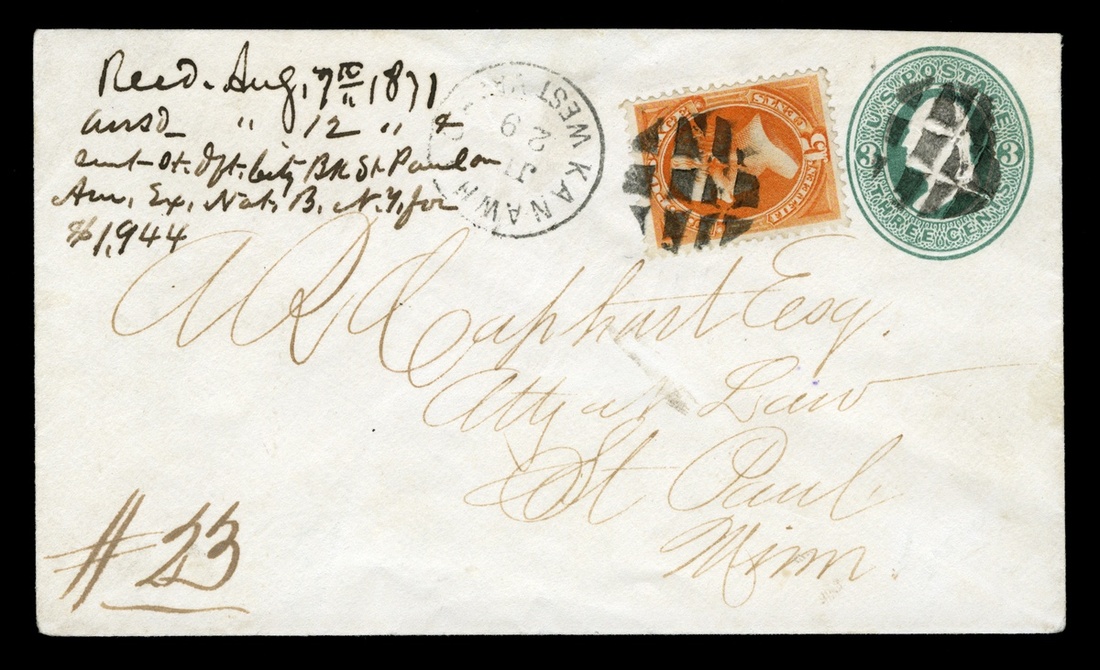 Recd. Aug, 7th 1871
ansd " 12 " &
sent St. Dft. City Bk St. Paul on
Am. Ex. Nat. B. N.Y. for
$1,944
KANAWHA
WEST VA
29
U.S. POSTAGE
3 3
THREE CENTS
CENTS
15
A R Capehart Esq.
Atty at Law
St Paul
Minn.
# 23